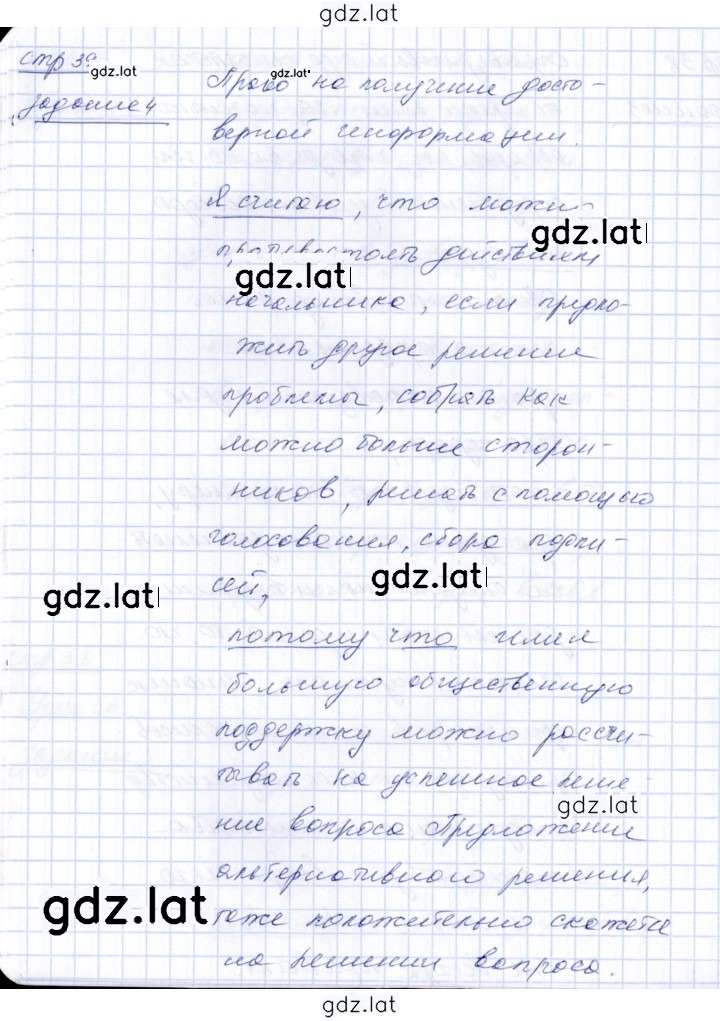 gdz.lat
стр 39
gdz.lat
gdz.lat
задание 4
Право на получение досто-
верной информации.
Я считаю, что можно
gdz.lat
противостоять действиям
gdz.lat
начальника, если предло-
жить другое решение
проблемы, собрать как
можно больше сторон-
ников, решать с помощью
голосования, сбора подпи-
сей,
gdz.lat
gdz.lat
потому что имея
большую общественную
поддержку можно рассчи-
тывать на успешное реше-
gdz.lat
ние вопроса. Предложение
альтернативного решения,
gdz.lat
тоже положительно скажется
на решении вопроса.
gdz.lat